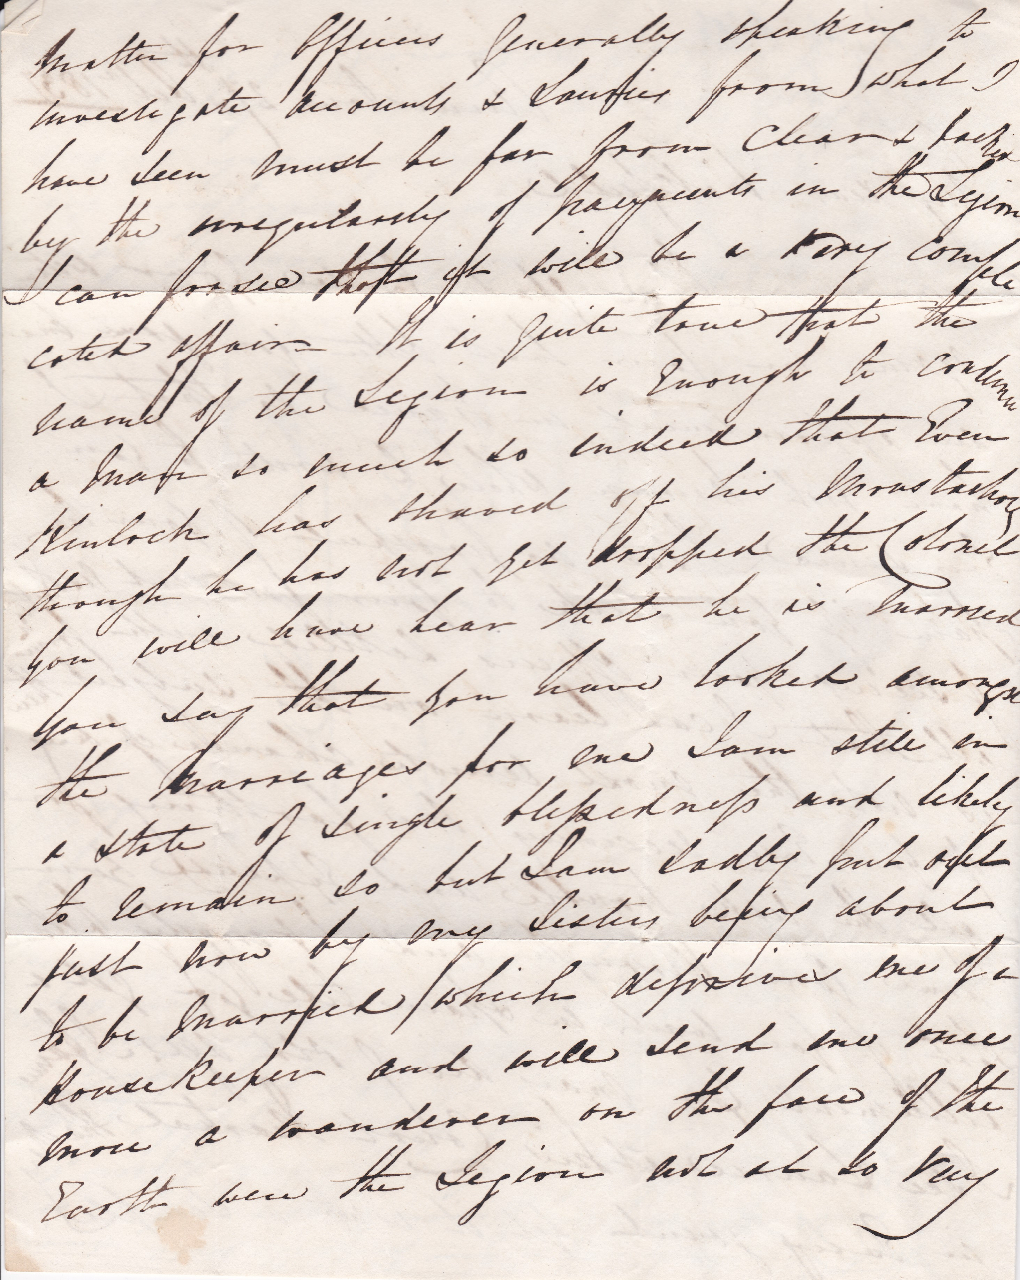 matter for Officers generally speaking to
investigate accounts & from what I
have seen must be far from clear &
by the irregularity of payments in the Legion
I can forsee that it will be a very compli
cated affair It is quite true that the
name of the Legion is enough to condemn
a Man so much so indeed that Even
Kinloch has shaved off his Moustachos
though he has not yet dropped the Colonel
you will have hear that he is Married
you say that you have looked amongst
the Marriages for me I am still in
a state of single blessedness and likely
to remain so but I am sadly put out
just now by my Sisters being about
to be Married which deprives me of a
Housekeeper and will send me once
more a wanderer on the face of the
Earth were the Legion not at so very